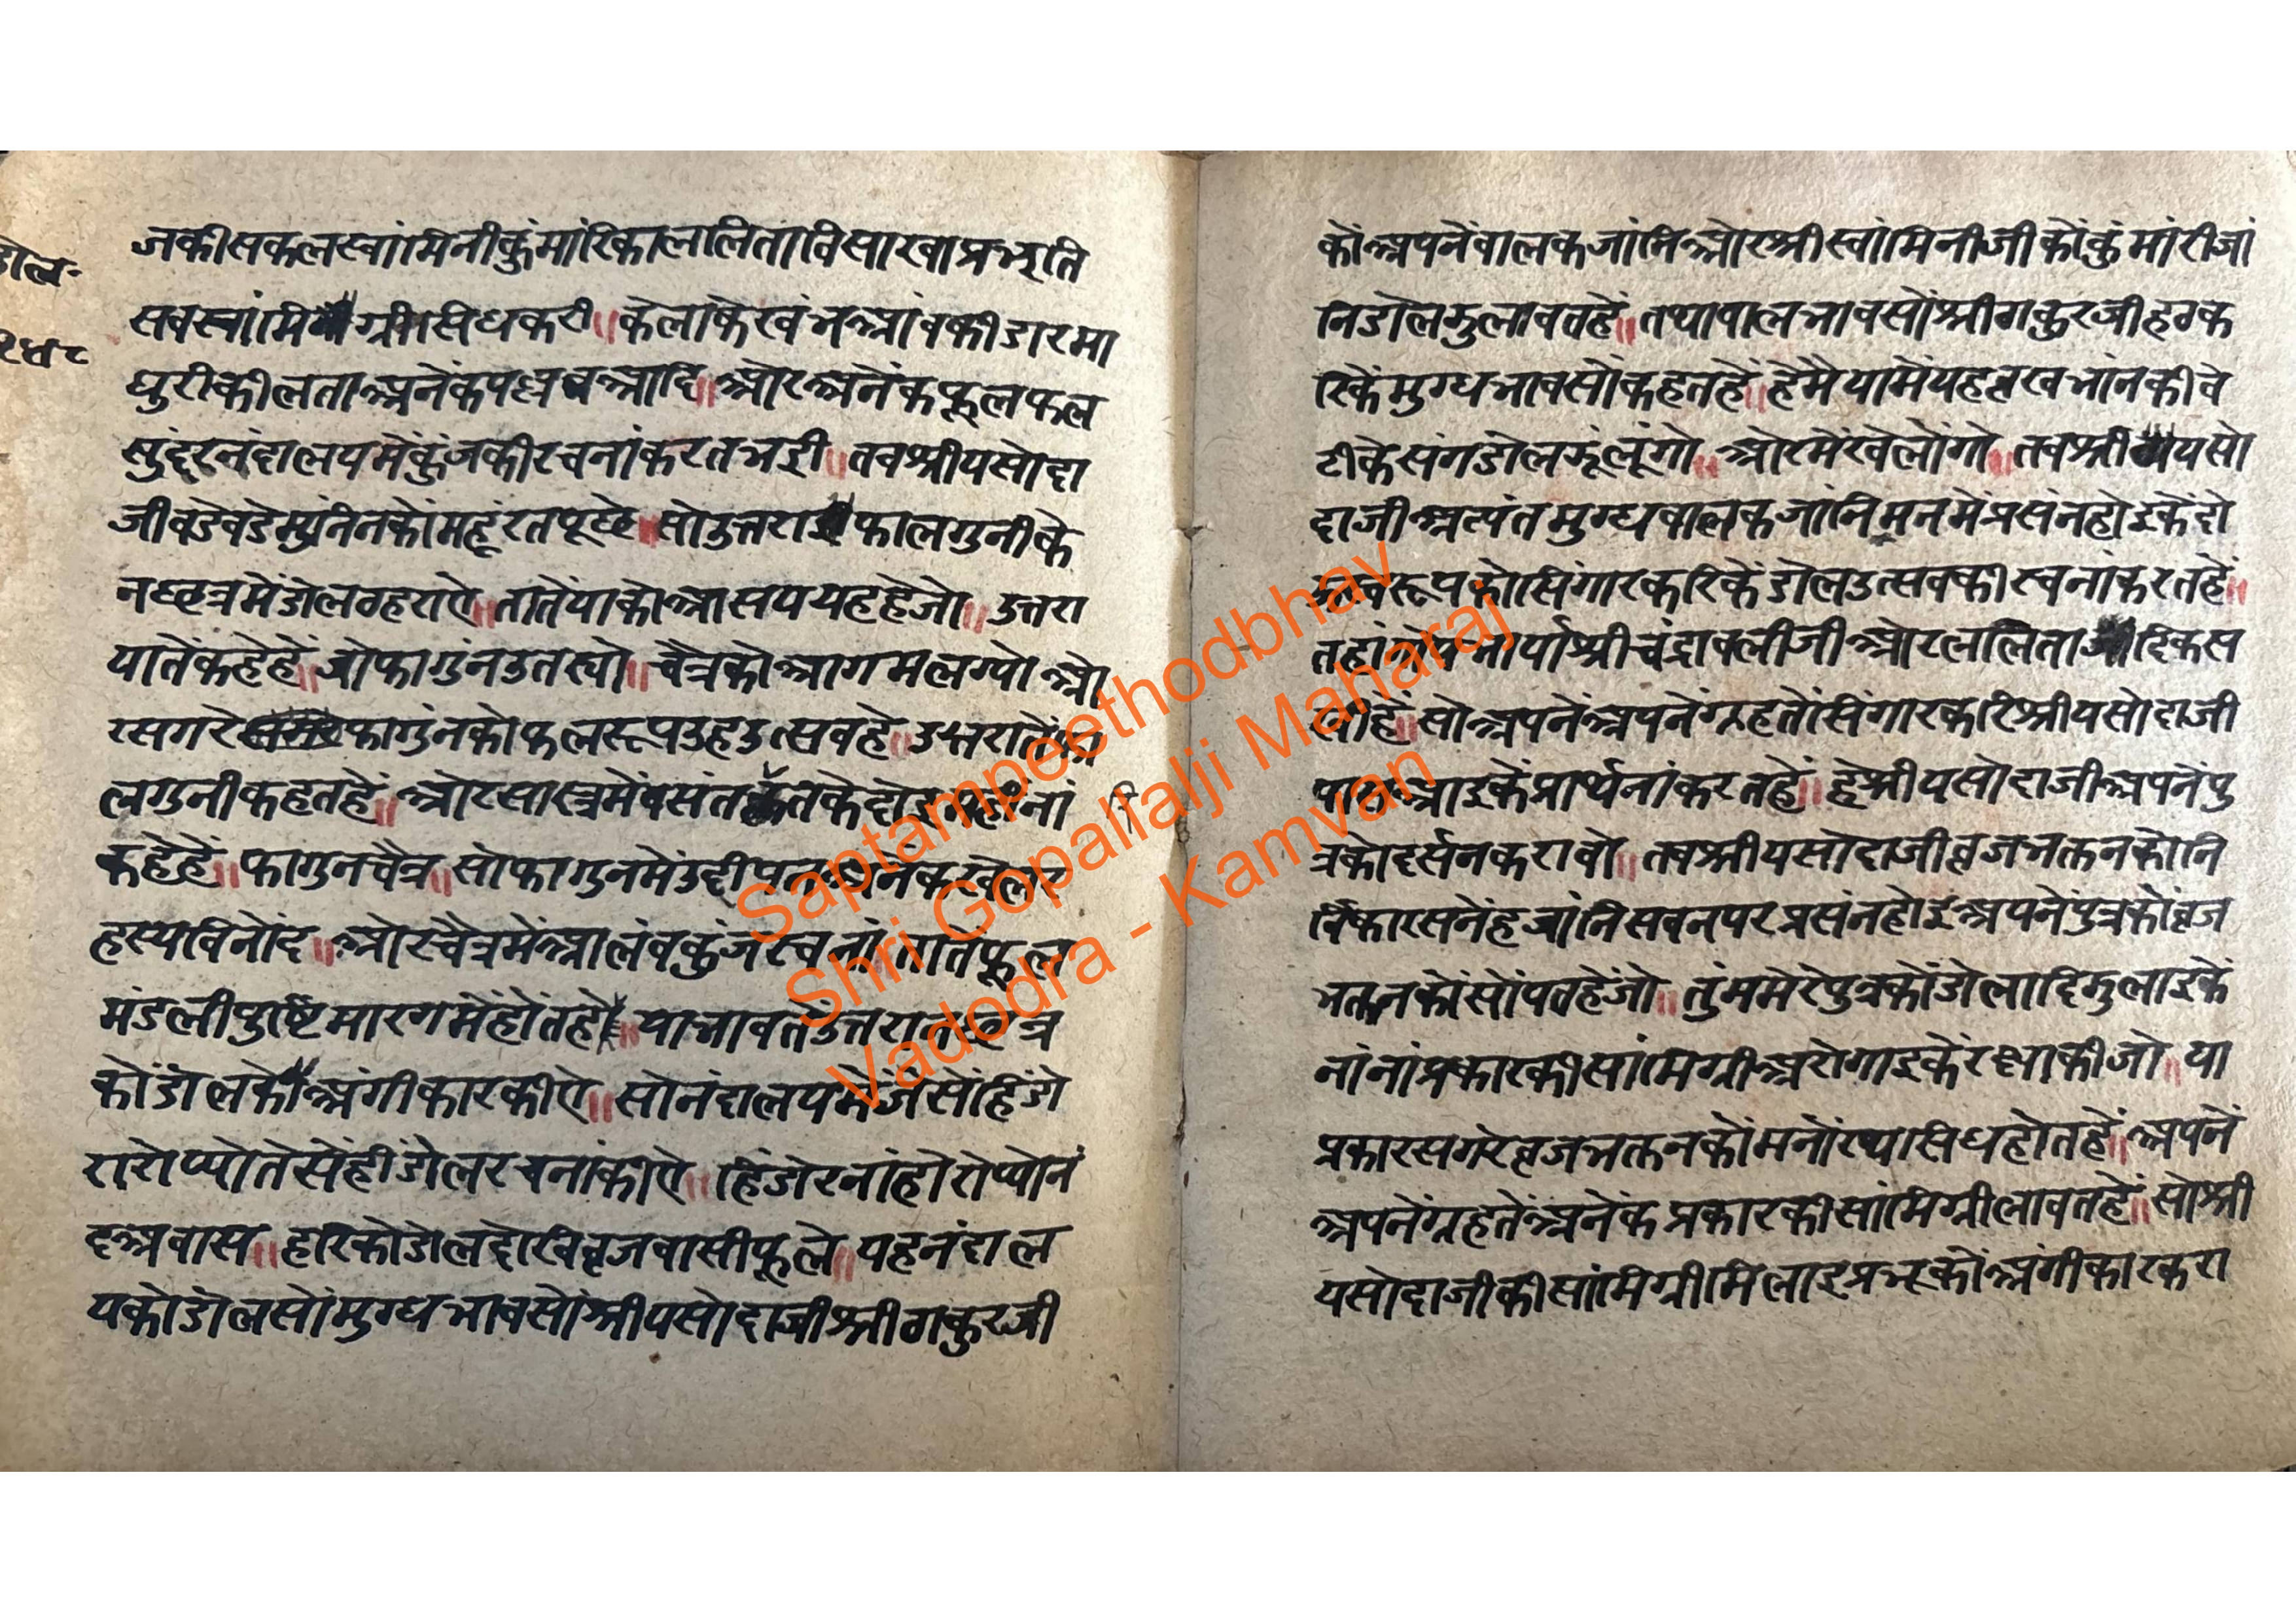 डोल॰
जकीसकलस्वांमिनीकुंमांरिकाललिताविसाखाप्रभृति
सबस्वांमिग्रीसिधकरी॥केलाकेखंभआंबकीडारमा
धुरीकीलताअनेकपल्लवआदि॥ओरअनेंकफूलफल
सुंदरनंदालयमेंकुंजकीरचनांकरतभई॥तबश्रीयसोदा
जीबडेबडेमुनिनकोंमहूंरतपूछे॥सोउत्तराफालगुनीके
नछत्रमेंडोलठहराऐ॥तातेंयाकोआसययहहेजो॥उत्तरा
यातेंकहेहें॥जोफागुंनउतस्यो॥चैत्रकोआगमलग्योओ
रसगरेफागुंनकोफलरूपउहउत्सवहे॥उत्तराते
लगुनीकहतहें॥ओरसास्त्रमेंबसंत
कहेहें॥फागुनचैत्र॥सोफागुनमेंउद्दीपनअनेंकखेलर
हस्यविनोंद॥ओरचैत्रमेंआलंबकुंजरचनांतातेफूल
मंडलीपुष्टिमारगमेंहोंतहे॥याभावतेंउत्तरानछत्र
कोंडोलकोंअंगीकारकीऐ॥सोनंदालयमेंजेसेंहिंडो
रारोप्योतेसेंहींडोलरचनांकीऐ॥हिंडोरनांहोरोप्योनं
दअवास॥हरिकोडोलदेखिब्रजवासीफूले॥यहनंदाल
यकोडोलसोंमुग्धभावसोंश्रीयसोदाजीश्रीठाकुरजी
कोंअपनेंबालकजांनिओरश्रीस्वांमिनीजीकोंकुंमांरीजां
निडोलझुलावतहें॥तथाबालभावसोंश्रीठाकुरजीहठक
रिकेंमुग्धभावसोंकहतहें॥हेमैयामेंयहब्रखभांनकीबे
टीकेसंगडोलझूंलूंगो॥ओरमेंखेलोंगो॥तबश्रीयसो
दाजीअत्यंतमुग्धबालकजांनिमनमेंप्रसंनहोइकेंदो
स्वरूपकोसिंगारकरिकेंडोलउत्सवकीरचनांकरतहें॥
तहांगोपभार्याश्रीचंद्रावलीजीओरललितादिकस
खीहें॥सोअपनेंअपनेंग्रहतेंसिंगारकरिश्रीयसोदाजी
पासआइकेंप्रार्थनांकरतहें॥हेश्रीयसोदाजीअपनेंपु
त्रकोदर्सनकरावो॥तबश्रीयसोदाजीब्रजभक्तनकोनि
र्विकारसनेंहजांनिसबनपरप्रसंनहोइअपनेंपुत्रकोंब्रज
भक्तनकोंसोंपतहेंजो॥तुंममेरेपुत्रकोंडोलादिझुलाइकें
नांनांप्रकारकीसांमिग्रीअरोगाइकेंरक्षाकीजो॥या
प्रकारसगरेब्रजभक्तनकोंमनोरथासिधहोतहें॥अपनें
अपनेंग्रहतेंअनेंकप्रकारकीसांमिग्रीलावतहें॥सोश्री
यसोदाजीकीसांमिग्रीमिलाइप्रभूकोंअंगीकारकरा
Saptampeethodbhav
Shri Gopallalji Maharaj
Vadodra - Kamvan